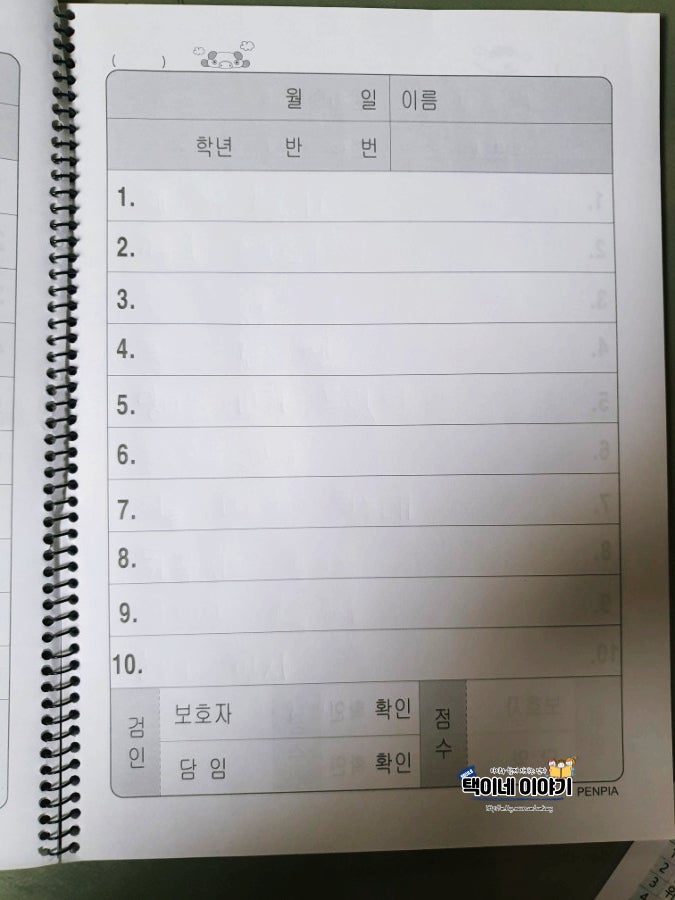 ( )
월 일 이름
학년 반 번
1.
2.
3.
4.
5.
6.
7.
8.
9.
10.
검인 보호자 확인 점수
담 임 확인
택이네 이야기
PENPIA